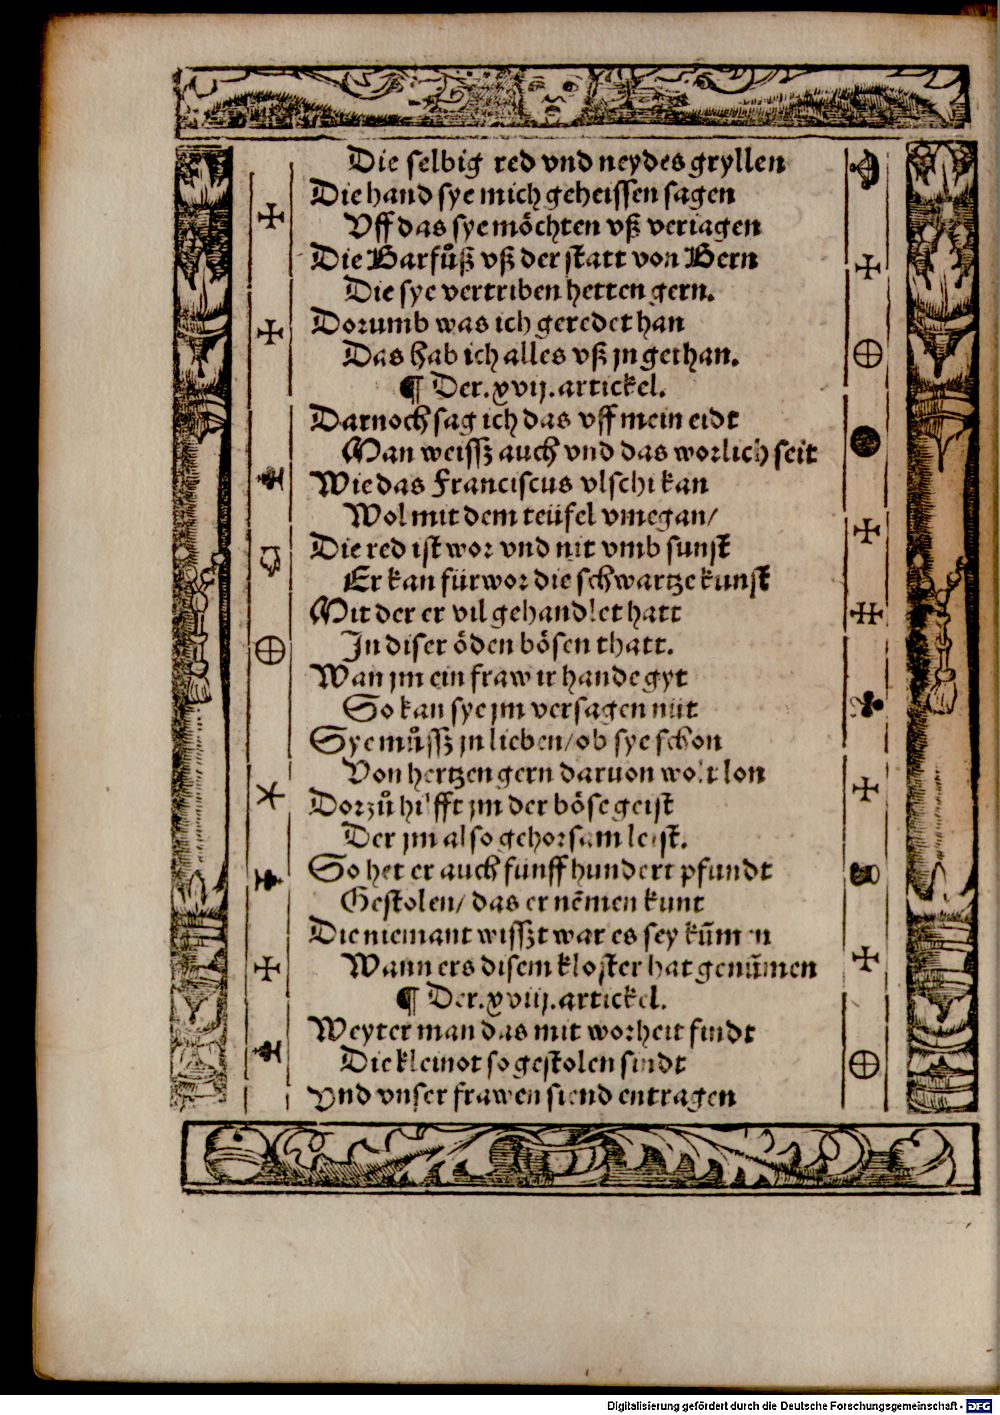 Die selbig red vnd neydes gryllen
Die hand sye mich geheissen sagen
Vff das sye möchten vß veriagen
Die Barfuͦß vß der statt von Bern
Die sye vertriben hetten gern.
Dorumb was ich geredet han
Das hab ich alles vß jn gethan.
¶ Der. xvij. artickel.
Darnoch sag ich das vff mein eidt
Man weissz auch vnd das worlich seit
Wie das Franciscus vlschi kan
Wol mit dem teüfel vmegan/
Die red ist wor vnd nit vmb sunst
Er kan fürwor die schwartze kunst
Mit der er vil gehandlet hatt
In diser öden bösen thatt.
Wan jm ein fraw ir hande gyt
So kan sye jm versagen nüt
Sye muͦssz jn lieben/ ob sye schon
Von hertzen gern daruon wolt lon
Dorzuͦ hilfft jm der böse geist
Der jm also gehorsam leist.
So het er auch funff hundert pfundt
Gestolen/ das er nēmen kunt
Die niemant wisszt war es sey kūmen
Wann ers disem kloster hat genūmen
¶ Der. xviij. artickel.
Weyter man das mit worheit findt
Die kleinot so gestolen sindt
Vnd vnser frawen siend entragen
Digitalisierung gefördert durch die Deutsche Forschungsgemeinschaft - DFG